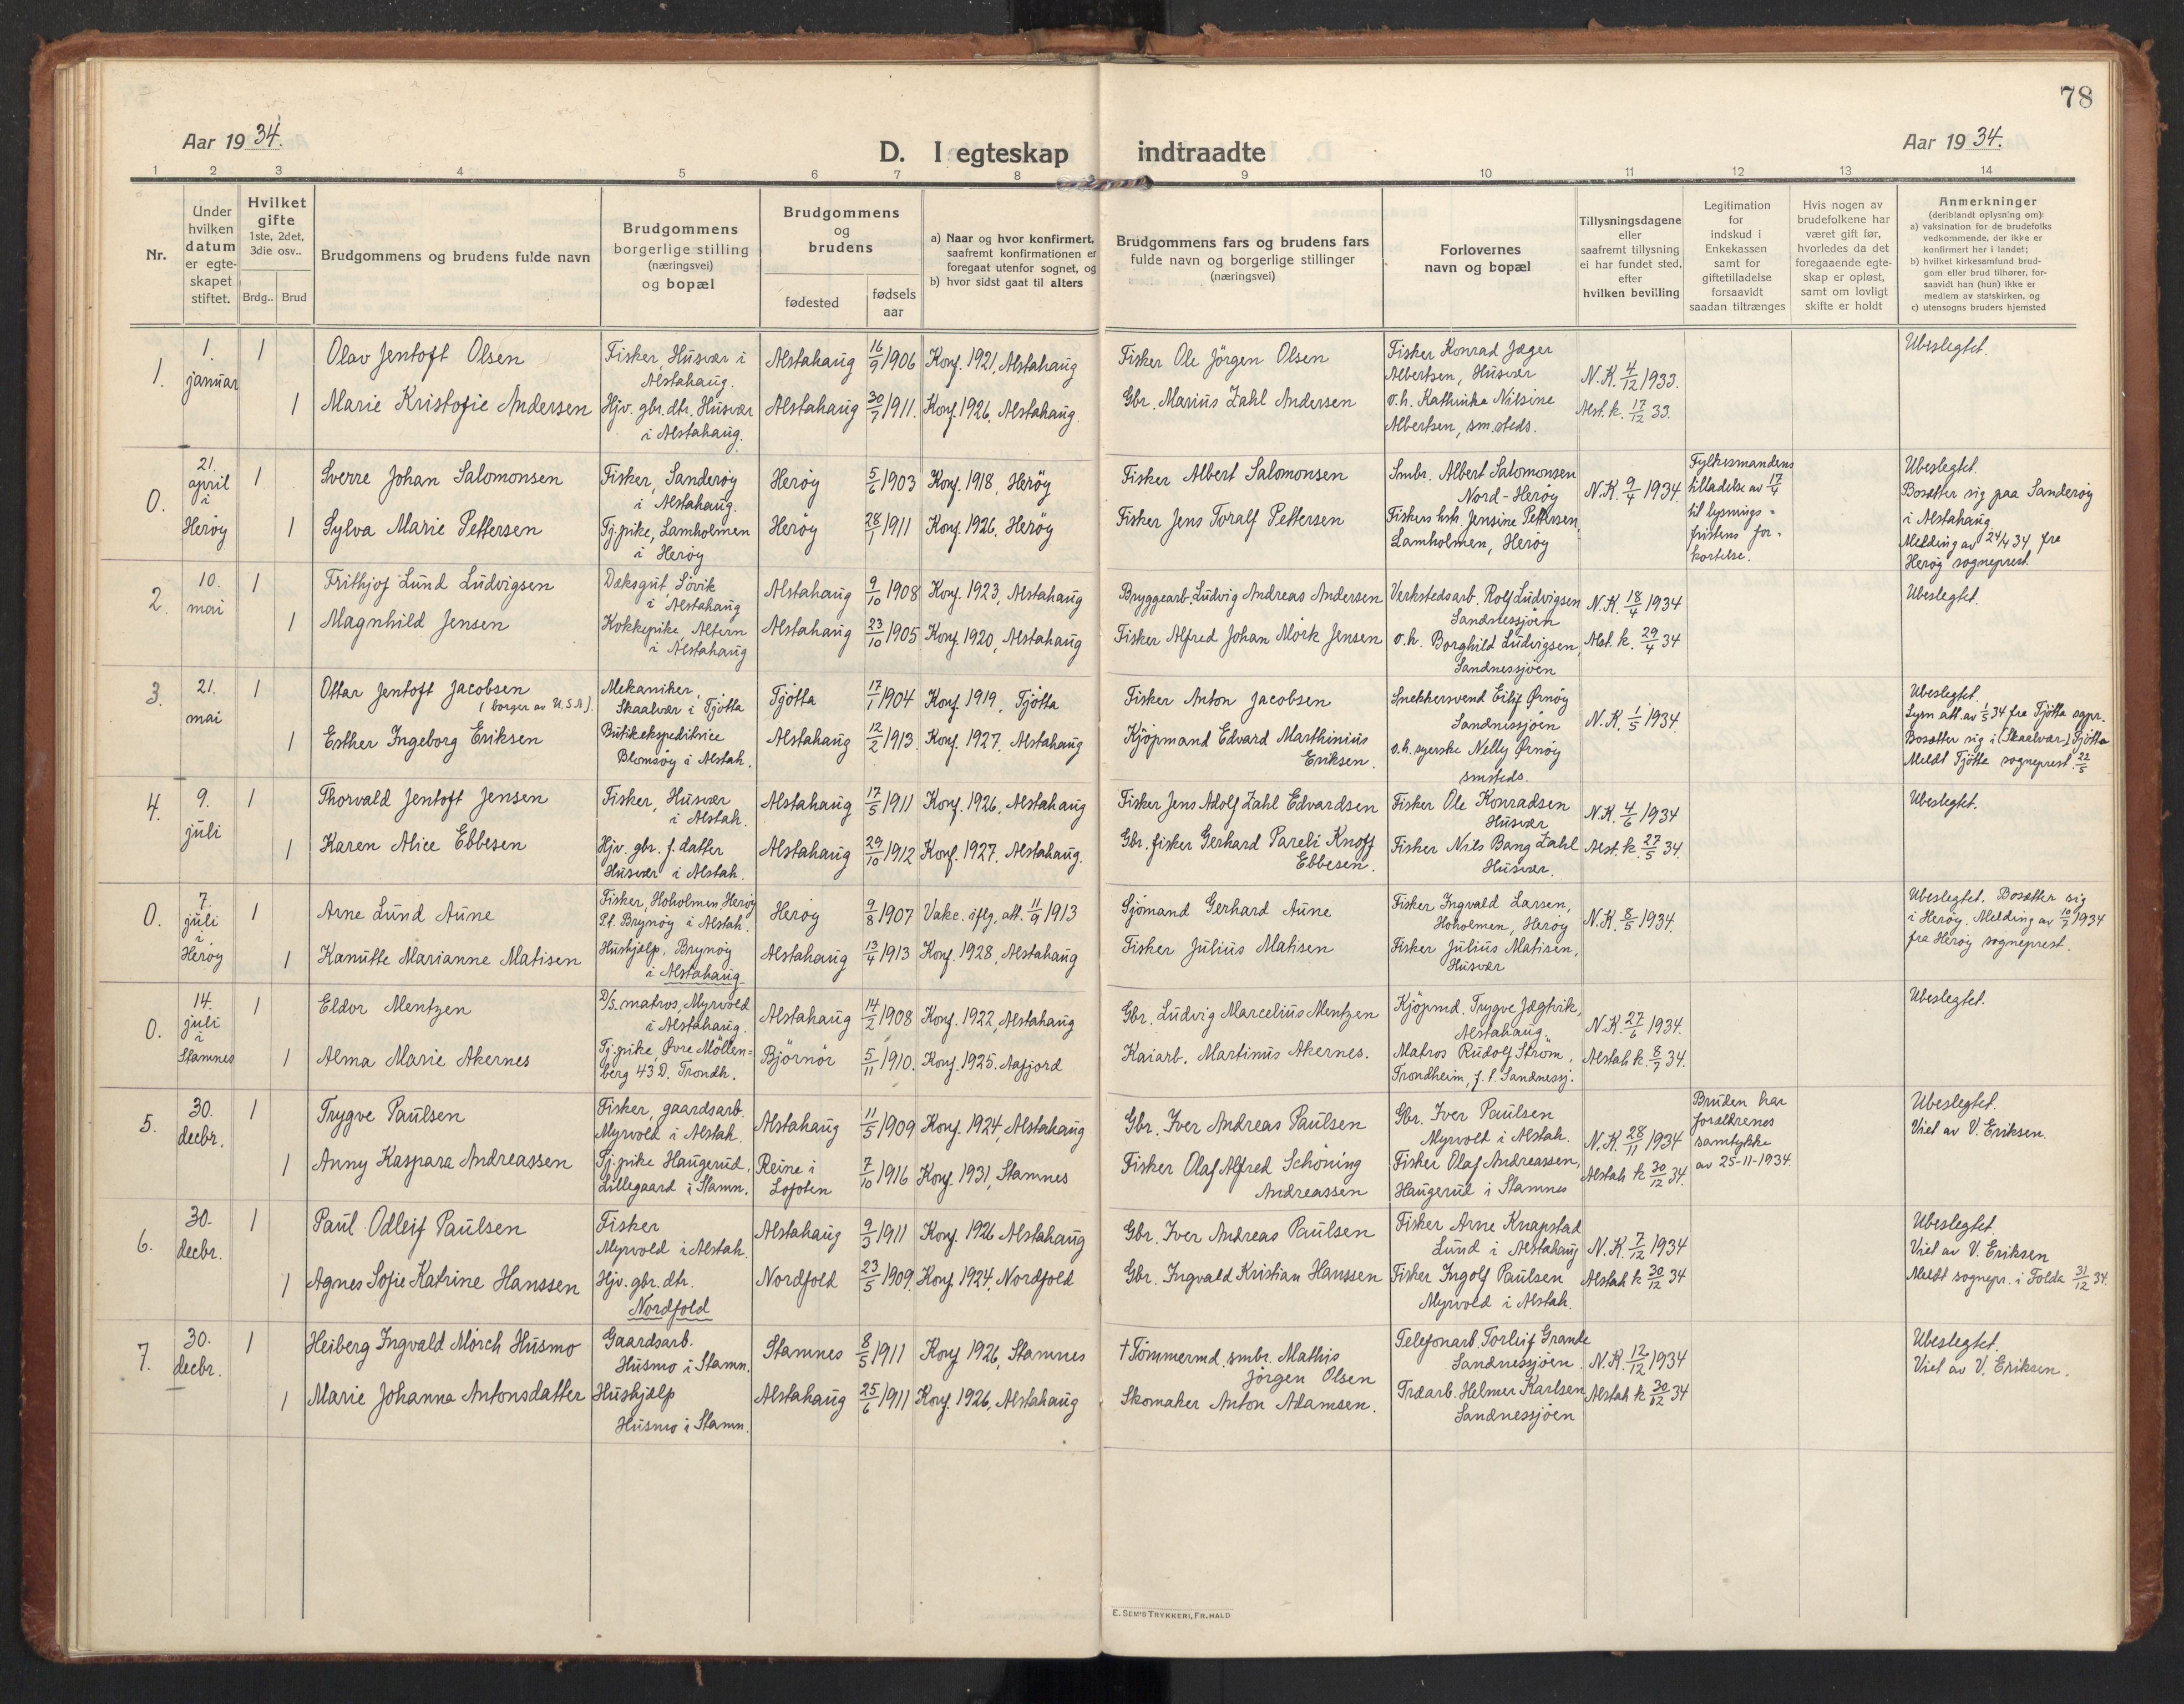 78
Aar 1934.
D. I egteskap indtraadte
Aar 1934.
1 2 3 4 5 6 7 8 9 10 11 12 13 14
Nr.
Under
hvilken
datum
er egte-
skapet
stiftet.
Hvilket
gifte
1ste, 2det,
3die osv..
Brdg.. Brud
Brudgommens og brudens fulde navn
Brudgommens
borgerlige stilling
(næringsvei)
og bopæl
Brudgommens
og
brudens
fødested
fødsels
aar
a) Naar og hvor konfirmert,
saafremt konfirmationen er
foregaat utenfor sognet, og
b) hvor sidst gaat til alters
Brudgommens fars og brudens fars
fulde navn og borgerlige stillinger
(næringsvei)
Forlovernes
navn og bopæl
Tillysningsdagene
eller
saafremt tillysning
ei har fundet sted,
efter
hvilken bevilling
Legitimation
for
indskud i
Enkekassen
samt for
giftetilladelse
forsaavidt
saadan tiltrænges
Hvis nogen av
brudefolkene har
været gift før,
hvorledes da det
foregaaende egte-
skap er opløst,
samt om lovligt
skifte er holdt
Anmerkninger
(deriblandt oplysning om):
a) vaksination for de brudefolks
vedkommende, der ikke er
konfirmert her i landet;
b) hvilket kirkesamfund brud-
gom eller brud tilhører, for-
saavidt han (hun) ikke er
medlem av statskirken, og
c) utensogns bruders hjemsted
1.
1.
januar
1
Olav Jentoft Olsen
Fisker, Husvær i
Alstahaug.
Alstahaug
16/9 1906
Konf. 1921, Alstahaug
Fisker Ole Jörgen Olsen
Fisker Konrad Jæger
Albertsen, Husvær
N.K. 4/12 1933.
Ubeslegtet.
1
Marie Kristofie Andersen
Hjv. gbr. dtr. Husvær
i Alstahaug.
Alstahaug
30/7 1911.
Konf. 1926, Alstahaug.
Gbr. Marius Zahl Andersen
o.h. Kathinka Nilsine
Albertsen, sm.steds.
Alst. k. 17/12 33.
0.
21.
april
i
Herøy
1
Sverre Johan Salomonsen
Fisker, Sanderøy
i Alstahaug.
Herøy
5/6 1903
Konf. 1918, Herøy
Fisker Albert Salomonsen
Smbr. Albert Salomonsen
Nord-Herøy
N.K. 9/4 1934.
Fylkesmandens
tilladelse av 17/4
til lysnings-
fristens for-
kortelse.
Ubeslegtet.
Bosætter sig paa Sanderøy
i Alstahaug
Melding av 24/4 34 fra
Herøy sogneprest.
1
Sylva Marie Pettersen
Tj.pike, Lamholmen
i Herøy
Herøy
28/1 1911
Konf. 1926, Herøy
Fisker Jens Toralf Pettersen
Fiskers hstr. Jensine Pettersen,
Lamholmen, Herøy
2.
10.
mai
1
Frithjof Lund Ludvigsen
Dæksgut, Søvik
i Alstahaug
Alstahaug
9/10 1908
Konf. 1923, Alstahaug
Bryggearb. Ludvig Andreas Andersen
Verkstedsarb. Rolf Ludvigsen
Sandnessjøen
N.K. 18/4 1934
Ubeslegtet.
1
Magnhild Jensen
Kokkepike, Altern
i Alstahaug
Alstahaug
23/10 1905
Konf. 1920, Alstahaug
Fisker Alfred Johan Mörk Jensen
o.h. Borghild Ludvigsen,
Sandnessjøen
Alst. k. 29/4 34
3.
21.
mai
1
Ottar Jentoft Jacobsen
(borger av U.S.A.)
Mekaniker,
Skaalvær i Tjøtta
Tjøtta
17/1 1904
Konf. 1919, Tjøtta
Fisker Anton Jacobsen
Snekkersvend Eilif Ørnøy
Sandnessjøen
N.K. 1/5 1934.
Ubeslegtet.
Lysn. att. av 1/5 34 fra Tjøtta sogpr.
Bosætter sig i (Skaalvær) Tjøtta
Meldt Tjøtta sogneprest 22/5
1
Esther Ingeborg Eriksen
Butikekspeditrice
Blomsøy i Alstah.
Alstahaug
12/2 1913.
Konf. 1927, Alstahaug
Kjøpmand Edvard Marthinius
Eriksen.
o.h. syerske Nelly Ørnøy
smsteds.
4.
9.
juli
1
Thorvald Jentoft Jensen
Fisker, Husvær
i Alstah.
Alstahaug
17/5 1911
Konf. 1926, Alstahaug
Fisker Jens Adolf Zahl Edvardsen
Fisker Ole Konradsen
Husvær
N.K. 4/6 1934
Ubeslegtet.
1
Karen Alice Ebbesen
Hjv. gbr. f. datter
Husvær i Alstah.
Alstahaug
29/10 1912
Konf. 1927, Alstahaug.
Gbr. fisker Gerhard Pareli Knoff
Ebbesen.
Fisker Nils Bang Zahl
Husvær.
Alst. k. 27/5 34.
0.
7.
juli
i
Herøy
1
Arne Lund Aune
Fisker, Hoholmen, Herøy
P.t. Brynøy i Alstah.
Herøy
9/8 1907
Vakc. iflg. att. 11/9 1913
Sjømand Gerhard Aune
Fisker Ingvald Larsen,
Hoholmen, Herøy
N.K. 8/5 1934.
Ubeslegtet. Bosætter sig
i Herøy. Melding av 10/7 1934
fra Herøy sogneprest.
1
Kanutte Marianne Matisen
Hushjælp, Brynøy
i Alstahaug
Alstahaug
13/4 1913
Konf. 1928, Alstahaug
Fisker Julius Matisen
Fisker Julius Matisen,
Husvær
0.
14.
juli
i
Stamnes
1
Eldor Mentzen
D/S. matros, Myrvold
i Alstahaug.
Alstahaug
14/2 1908
Konf. 1922, Alstahaug
Gbr. Ludvig Marcelius Mentzen
Kjöpmd. Trygve Jægtvik,
Alstahaug.
N.K. 27/6 1934.
Ubeslegtet.
1
Alma Marie Akernes
Tj.pike, Øvre Möllen-
berg 43 D. Trondh.
Björnör
5/11 1910.
Konf. 1925. Aafjord
Kaiarb. Martinus Akernes.
Matros Rudolf Ström,
Trondheim, f. t. Sandnessj.
Alstah k. 8/7 34.
5.
30.
decbr.
1
Trygve Paulsen
Fisker, gaardsarb.
Myrvold i Alstah.
Alstahaug
11/5 1909
Konf. 1924, Alstahaug
Gbr. Iver Andreas Paulsen
Gbr. Iver Paulsen
Myrvold i Alstah.
N.K. 28/11 1934
Bruden har
forældrenes
samtykke
av 25-11-1934.
Ubeslegtet.
Viet av V. Eriksen.
1
Anny Kaspara Andreassen
Tj.pike Haugerud,
Lillegaard i Stamn.
Reine i
Lofoten
7/10 1916
Konf. 1931, Stamnes
Fisker Olaf Alfred Schöning
Andreassen
Fisker Olaf Andreassen,
Haugerud i Stamnes
Alstah k 30/12 34.
6.
30.
decbr.
1
Paul Odleif Paulsen
Fisker
Myrvold i Alstah.
Alstahaug
9/5 1911
Konf. 1926 Alstahaug
Gbr. Iver Andreas Paulsen
Fisker Arne Knapstad
Lund i Alstahaug
N.K. 7/12 1934
Ubeslegtet.
Viet av V. Eriksen
Meldt sognepr. i Folda 31/12 34.
1
Agnes Sofie Katrine Hanssen
Hjv. gbr. dtr.
Nordfold
Nordfold
23/5 1909.
Konf. 1924, Nordfold
Gbr. Ingvald Kristian Hanssen
Fisker Ingolf Paulsen
Myrvold i Alstah.
Alstah k 30/12 34
7.
30.
decbr.
1
Heiberg Ingvald Mörch Husmo
Gaardsarb.
Husmo i Stamn.
Stamnes
8/5 1911
Konf 1926, Stamnes
†Tömmermd. smbr. Mathis
Jörgen Olsen
Telefonarb. Torleif Grande
Sandnessjöen
N.K. 12/12 1934
Ubeslegtet.
Viet av V. Eriksen.
1
Marie Johanna Antonsdatter
Hushjælp
Husmo i Stamn.
Alstahaug
25/6 1911
Konf. 1926, Alstahaug
Skomaker Anton Adamsen.
Træarb. Helmer Karlsen
Sandnessjöen
Alstah k 30/12 34
E. SEM'S TRYKKERI, FR.HALD